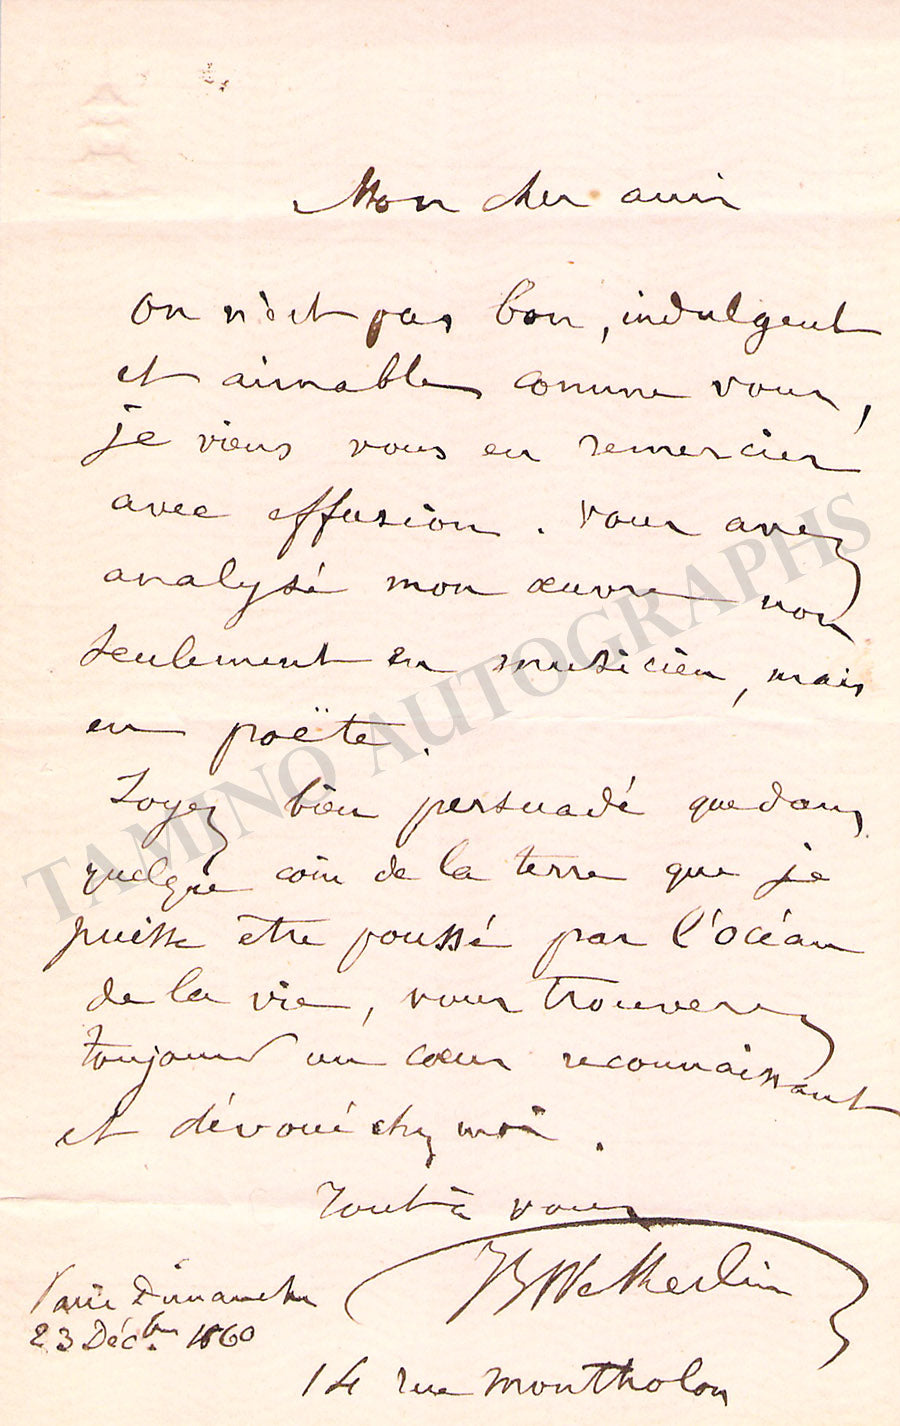 Mon cher ami
On n'est pas bon, indulgent
et aimable comme vous,
je viens vous en remercier
avec effusion. Vous avez
analysé mon œuvre non
seulement en musicien, mais
en poëte.
Soyez bien persuadé que dans
quelque coin de la terre que je
puisse être poussé par l'océan
de la vie, vous trouverez
toujours un cœur reconnaissant
et dévoué chez moi.
Tout à vous
JB Wekerlin
Paris Dimanche
23 Déc.bre 1860
14 rue Montholon
TAMINO AUTOGRAPHS